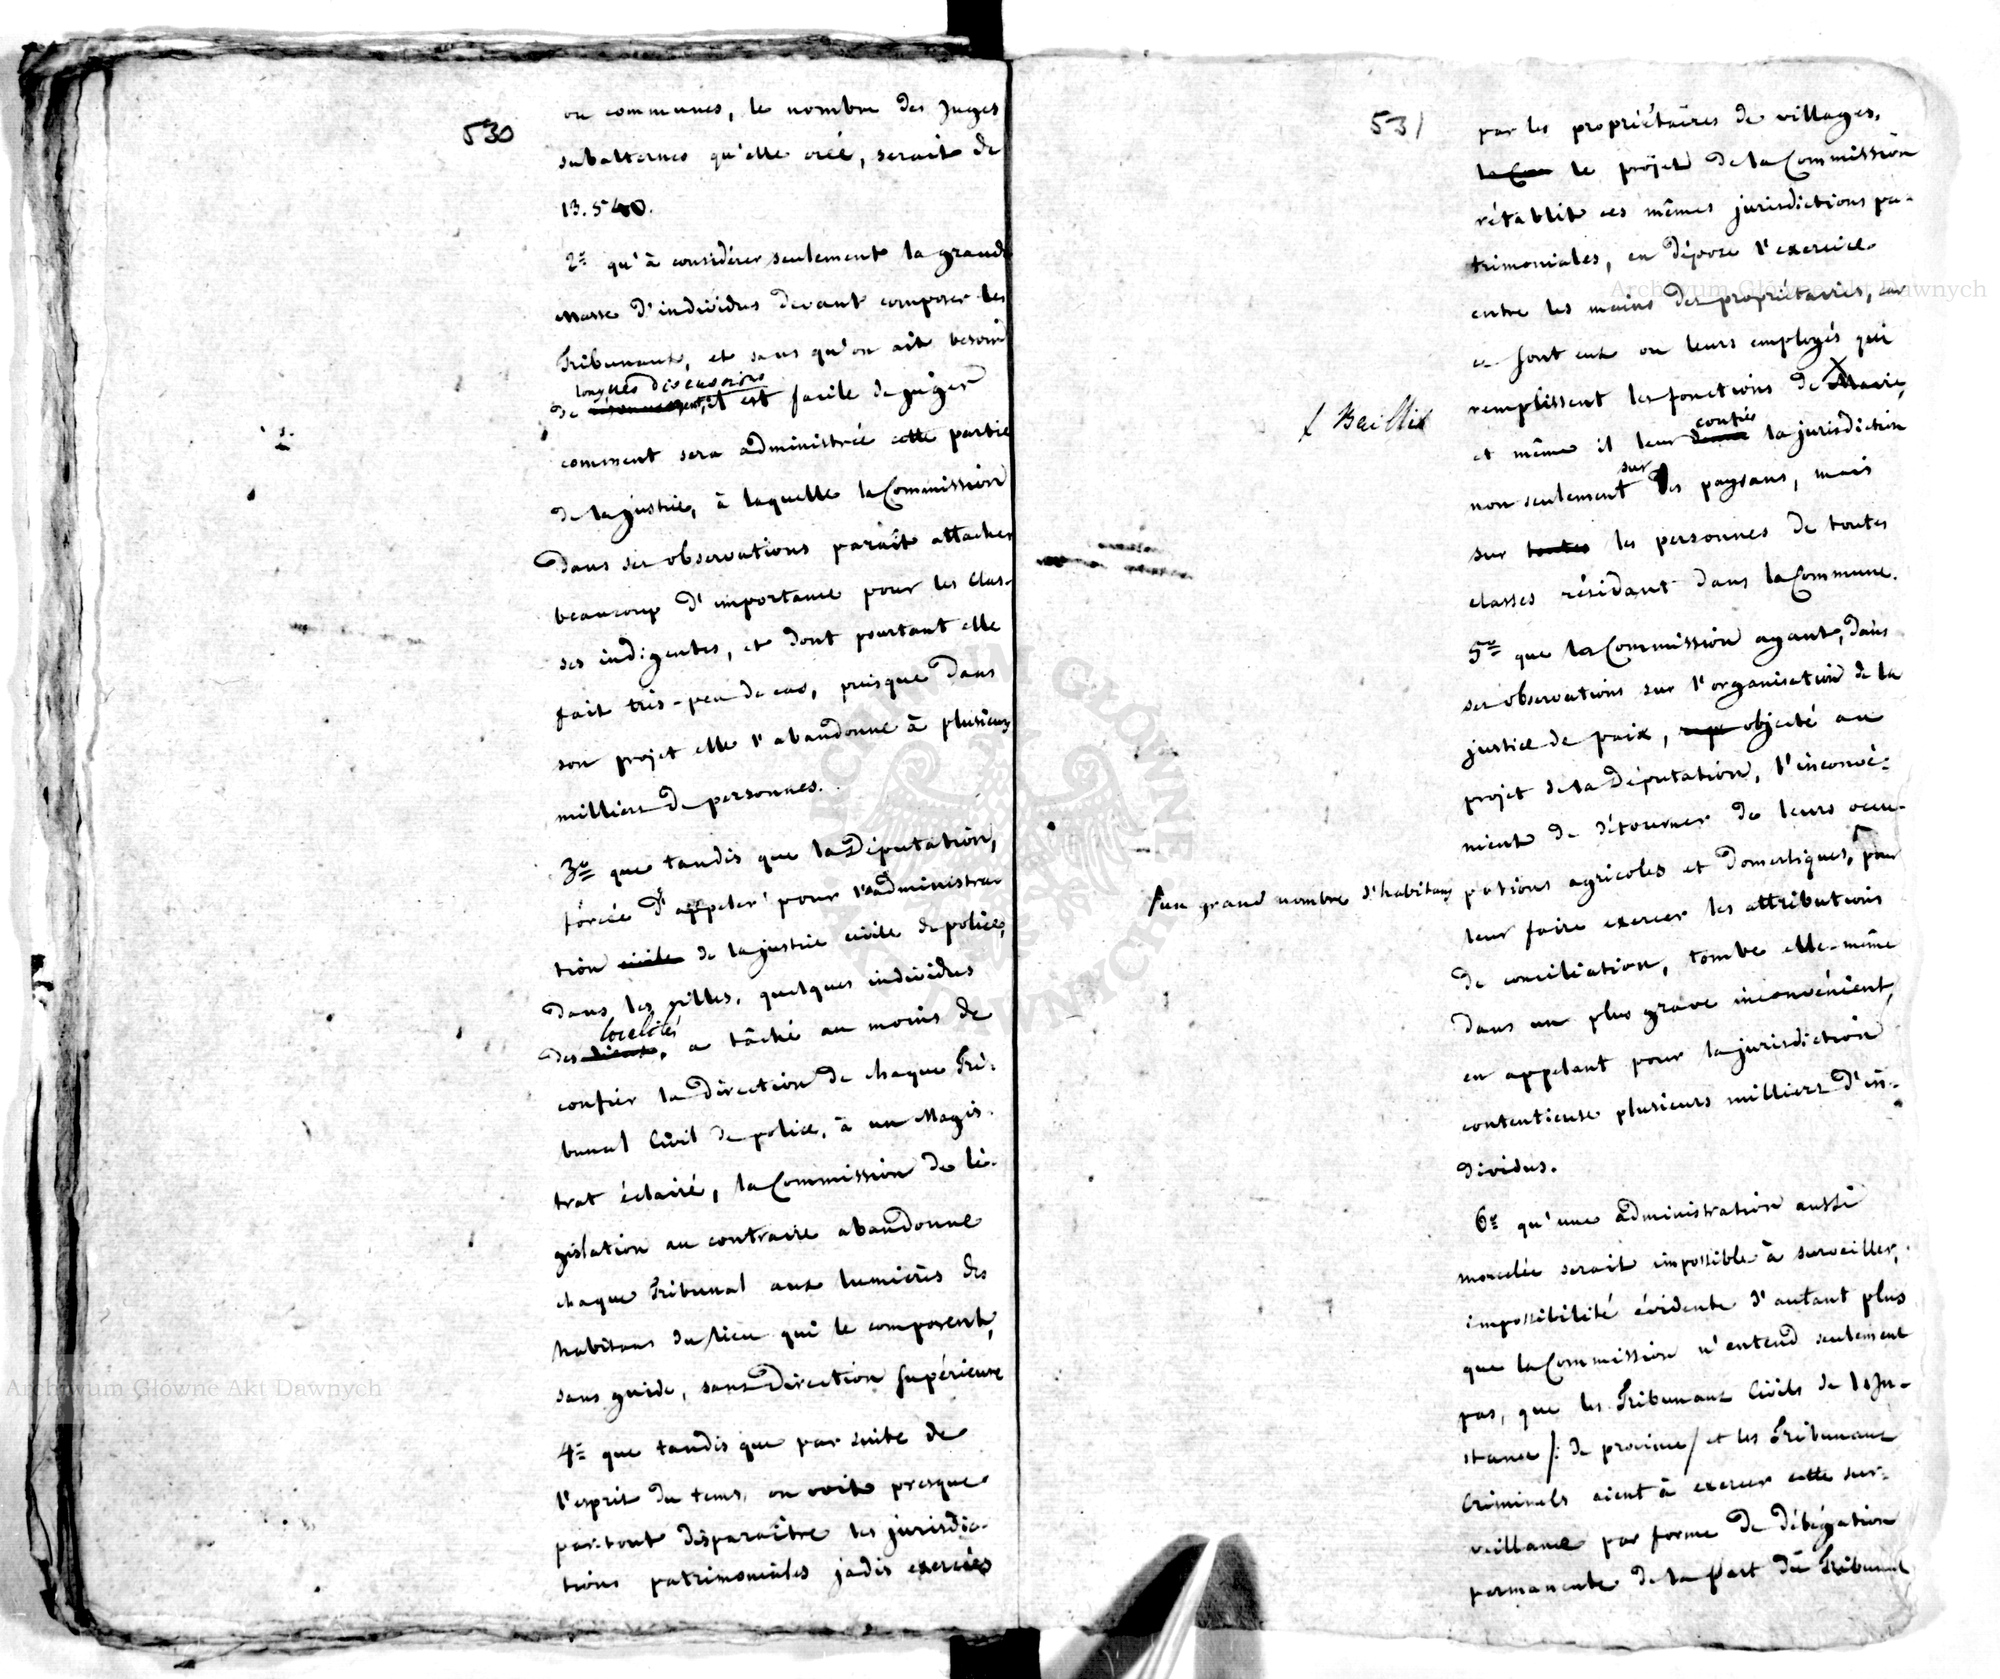 530
ou communes, le nombre des Juges
subalternes qu'elle crée, serait de
13.540.
2º qu'à considérer seulement la grande
masse d'individus devant composer les
Tribunaux, et sans qu'on ait besoin
longues discussions
de il est facile de juger
comment sera administrée cette partie
de la justice, à laquelle la Commission
dans ses observations paraît attacher
beaucoup d'importance pour les clas-
ses indigentes, et dont pourtant elle
fait très-peu de cas, puisque dans
son projet elle l'abandonne à plusieurs
milliers de personnes.
3º que tandis que la Députation,
forcée d'appeler pour l'administra-
tion civile de la justice civile de police,
dans les villes, quelques individus
localités
des, a tâché au moins de
confier la direction de chaque Tri-
bunal Civil de police, à un Magis-
trat éclairé, la Commission de lé-
gislation au contraire abandonne
chaque Tribunal aux lumières des
habitans du lieu qui le composent,
sans guide, sans direction supérieure
4º que tandis que par suite de
l'esprit du tems, on voit presque
partout disparaître les jurisdic-
tions patrimoniales jadis exercées
531
par les propriétaires de villages,
la Com le projet de la Commission
rétablit ces mêmes jurisdictions pa-
trimoniales, en dépose l'exercice
entre les mains des propriétaires, car
ce sont eux ou leurs employés qui
remplissent les fonctions de Maire,
X Baillis
confie
et même il leur donne la jurisdiction
sur
non seulement les paysans, mais
sur toutes les personnes de toutes
classes résidant dans la Commune.
5º que la Commission ayant, dans
ses observations sur l'organisation de la
justice de paix, objecté au
projet de la Députation, l'inconvé-
nient de détourner de leurs occu-
pations agricoles et domestiques, pour
/un grand nombre d'habitans
leur faire exercer les attributions
de conciliation, tombe elle-même
dans un plus grave inconvénient,
en appelant pour la jurisdiction
contentieuse plusieurs milliers d'in-
dividus.
6º qu'une administration aussi
morcelée serait impossible à surveiller,
impossibilité évidente d'autant plus
que la Commission n'entend seulement
pas, que les Tribunaux Civils de 1e In-
stance /: de province/ et les Tribunaux
Criminels aient à exercer cette sur-
veillance par forme de délégation
permanente de la part du Tribunal
Archiwum Główne Akt Dawnych
Archiwum Główne Akt Dawnych
ARCHIWUM GŁÓWNE AKT DAWNYCH